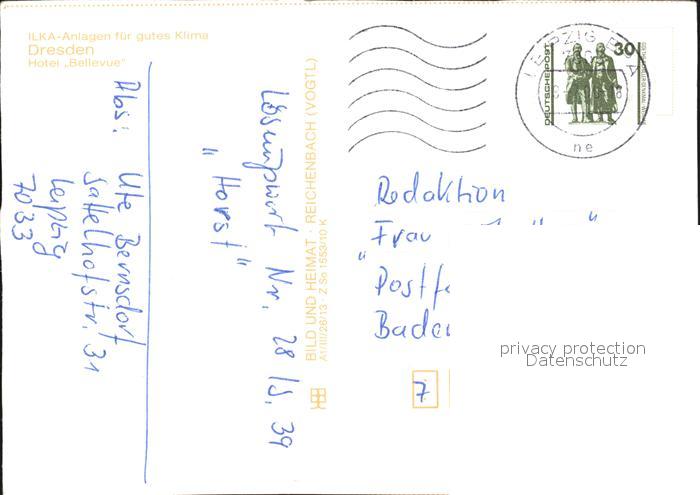 ILKA-Anlagen für gutes Klima
Dresden
Hotel „Bellevue"
Abs: Ute Bernsdorf
Sattelhofstr. 31
Leipzig
7033
Lösungswort Nr. 28 /S. 39
"Horst"
BILD UND HEIMAT · REICHENBACH (VOGTL)
A1/III/26/13 · Z So 1553/10 K
LEIPZIG
DEUTSCHE POST
30
ne
Redaktion
"Frau
Postf
Bade
7
privacy protection
Datenschutz